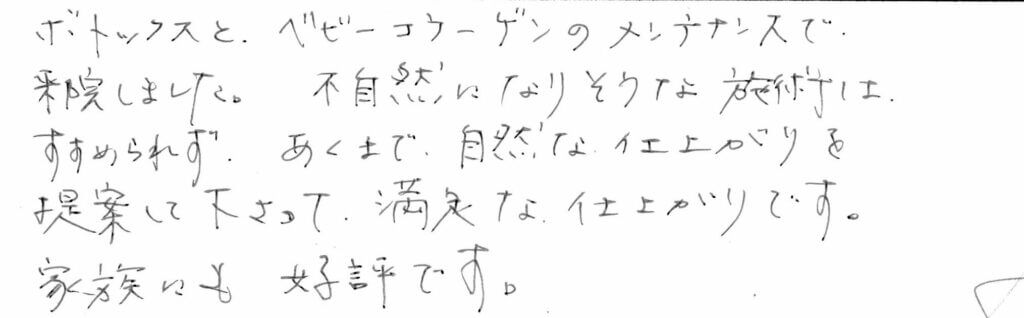 ボトックスと、ベビーコラーゲンのメンテナンスで、
来院しました。 不自然になりそうな施術は、
すすめられず、あくまで、自然な仕上がりを
提案して下さって、満足な仕上がりです。
家族にも 好評です。